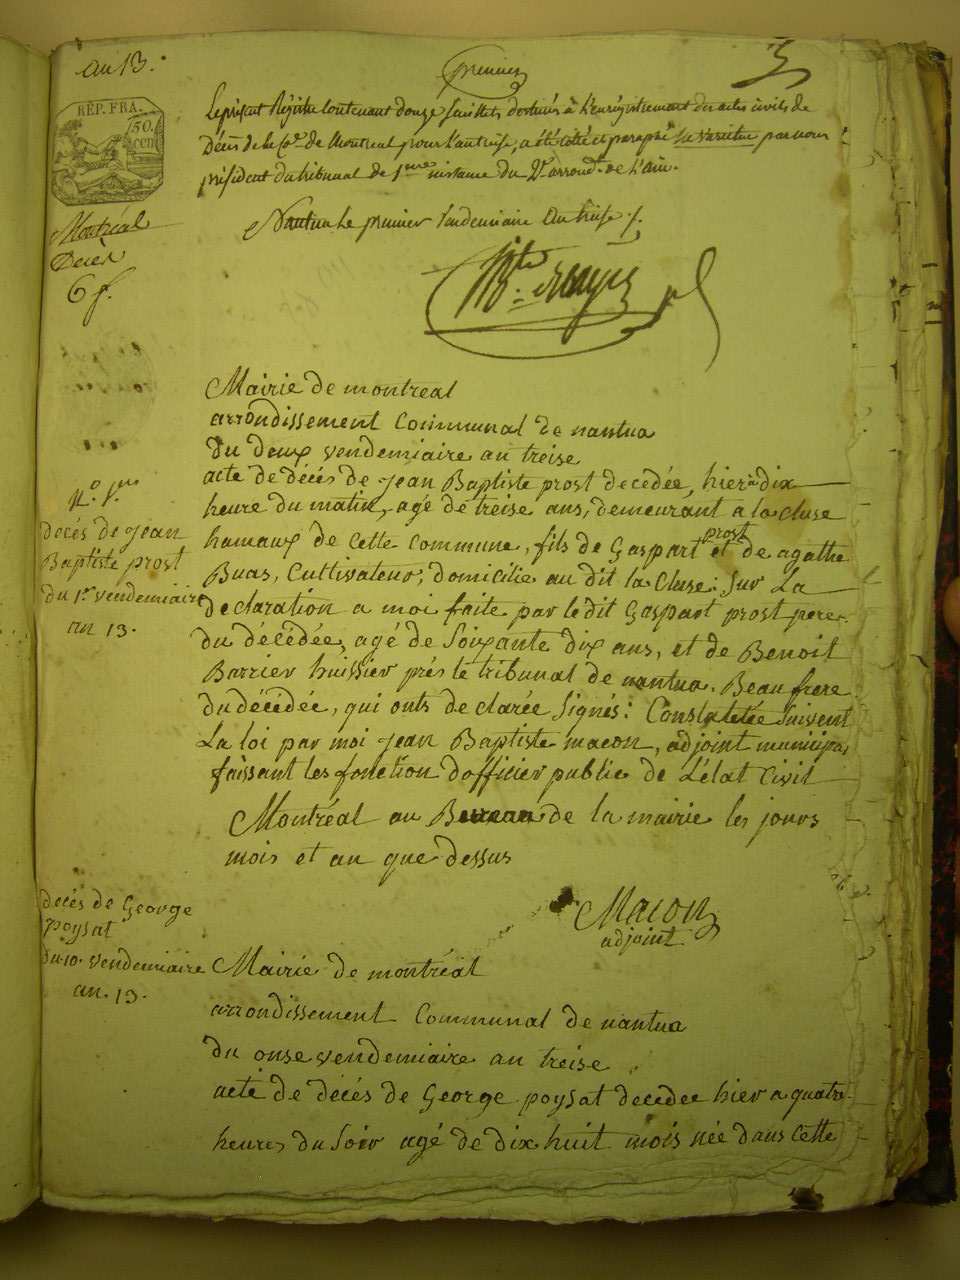 an 13.
premier
RÉP. FRA.
50.
cen
Le présent Régistre contenant douze feuillets destinés à l'enregistrement des actes civils de
Décès de la Cne. de Montreal pour l'an treise, a été coté et paraphé par nous
président du tribunal de 1ere instance du arrondt. de l'ain.
Nantua Le premier Vendemiaire an treise ./.
Montréal
Décès
6 f.
Mairie de montreal
arrondissement Communal de nantua
Du deux vendemiaire an treise
acte de décés de Jean Baptiste prost decedée, hier a dix
heure du matin, agé de treise ans, demeurant a la cluse
hamaux de cette commune, fils de Gaspart prost et de agathe
Buas, Cultivateur, domicilie au dit la Cluse: Sur La
declaration a moi faite par le dit Gaspart prost pere
du décédée, agé de Soixante dix ans, et de Benoit
Barrier huissier prés le tribunal de nantua. Beau frere
du décédée, qui onts declarée Signés: Constatée Suivent
La loi par moi Jean Baptiste macon, adjoint municipa
faissant les fonction d'officier public de L'état Civil
Montréal au Bureau de la mairie les jours
mois et an que dessus
No. 1er
decés de Jean
Baptiste prost
du 1er. vendemiaire
an 13.
Macon
adjoint
decés de George
poysat
du 10. vendemiaire
an. 13.
Mairie de montréal
arrondissement Communal de nantua
du onse vendemiaire an treise
acte de décés de George poysat decedee hier a quatre
heures du Soir agé de dix huit mois née dans cette